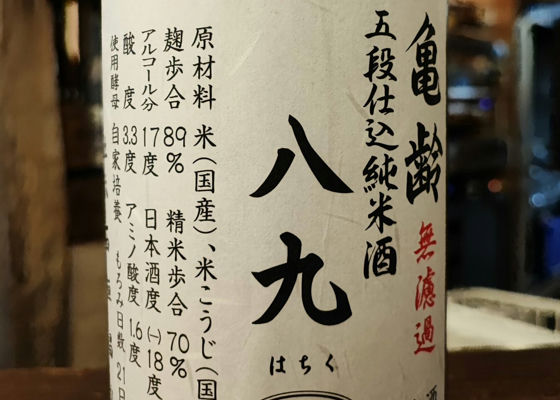 亀齢
無濾過
五段仕込純米酒
八九
はちく
原材料 米(国産)、米こうじ(国
麹歩合 89% 精米歩合 70%
アルコール分 17度 日本酒度 (一)18度
酸度 3.3度 アミノ酸度 1.6度
使用酵母 自家培養 もろみ日数 21日
酒